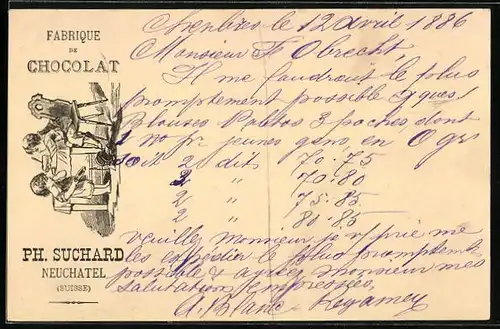 FABRIQUE
DE
CHOCOLAT
PH. SUCHARD
NEUCHATEL
(SUISSE)
Chexbres le 12 avril 1886
Monsieur F Obrecht,
Il me faudrait le plus
promptement possible qques
Blouses Paletos 3 poches, dont
2 no pr jeunes gens, en
soit 2 dits 70-75
2 " 70-80
2 " 75-85
2 " 80-85
veuillez monsieur je v/prie me
les expédier le plus promptemt
possible & agréez monsieur mes
salutations empressées,
A. Blanc Legamey